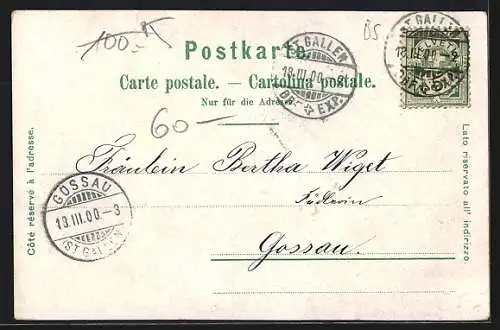 100.-
BS
Postkarte.
Carte postale. — Cartolina postale.
Nur für die Adresse.
ST. GALLEN
18.III.00.-8
BRF. EXP.
ST. GALLEN
18.III.00.-8
BRF. EXP.
HELVETIA
60—
Fräulein Bertha Wiget
Gossau.
GOSSAU
18.III.00.-3
(ST. GALLEN)
Côté réservé à l'adresse.
Lato riservato all' indirizzo.